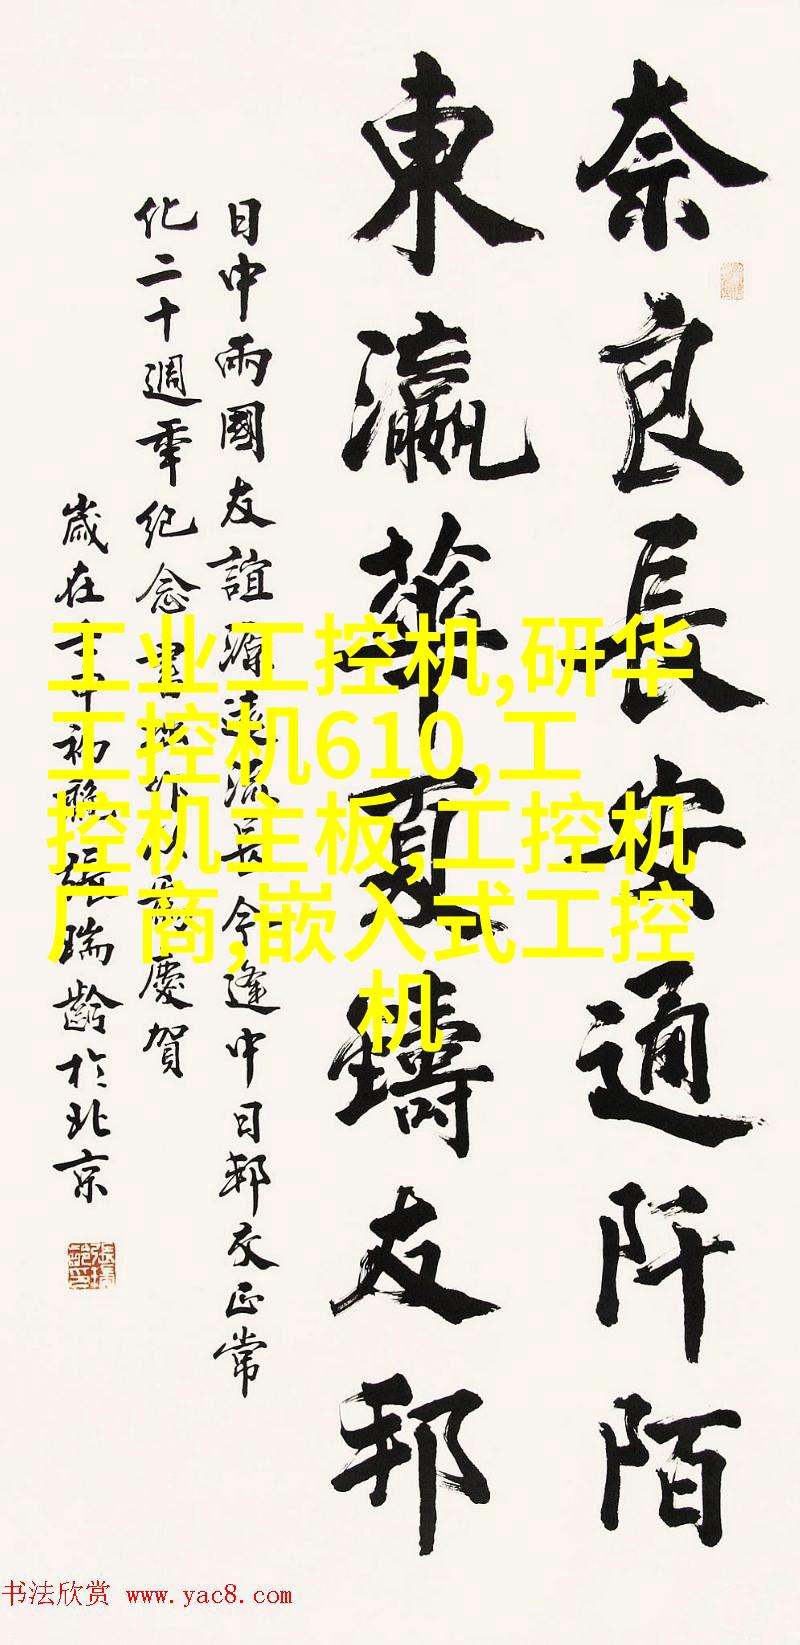 奈良長安通阡陌
東瀛華夏鑄友邦
日中兩國友誼源遠流長今逢中日邦交正常
化二十週年紀念書此作以為慶賀
歲在壬申初張瑞齡於北京
工业工控机,研华
工控机610,工
控机主板,工控机
厂商,嵌入式工控
机
书法欣赏 www.yac8.com